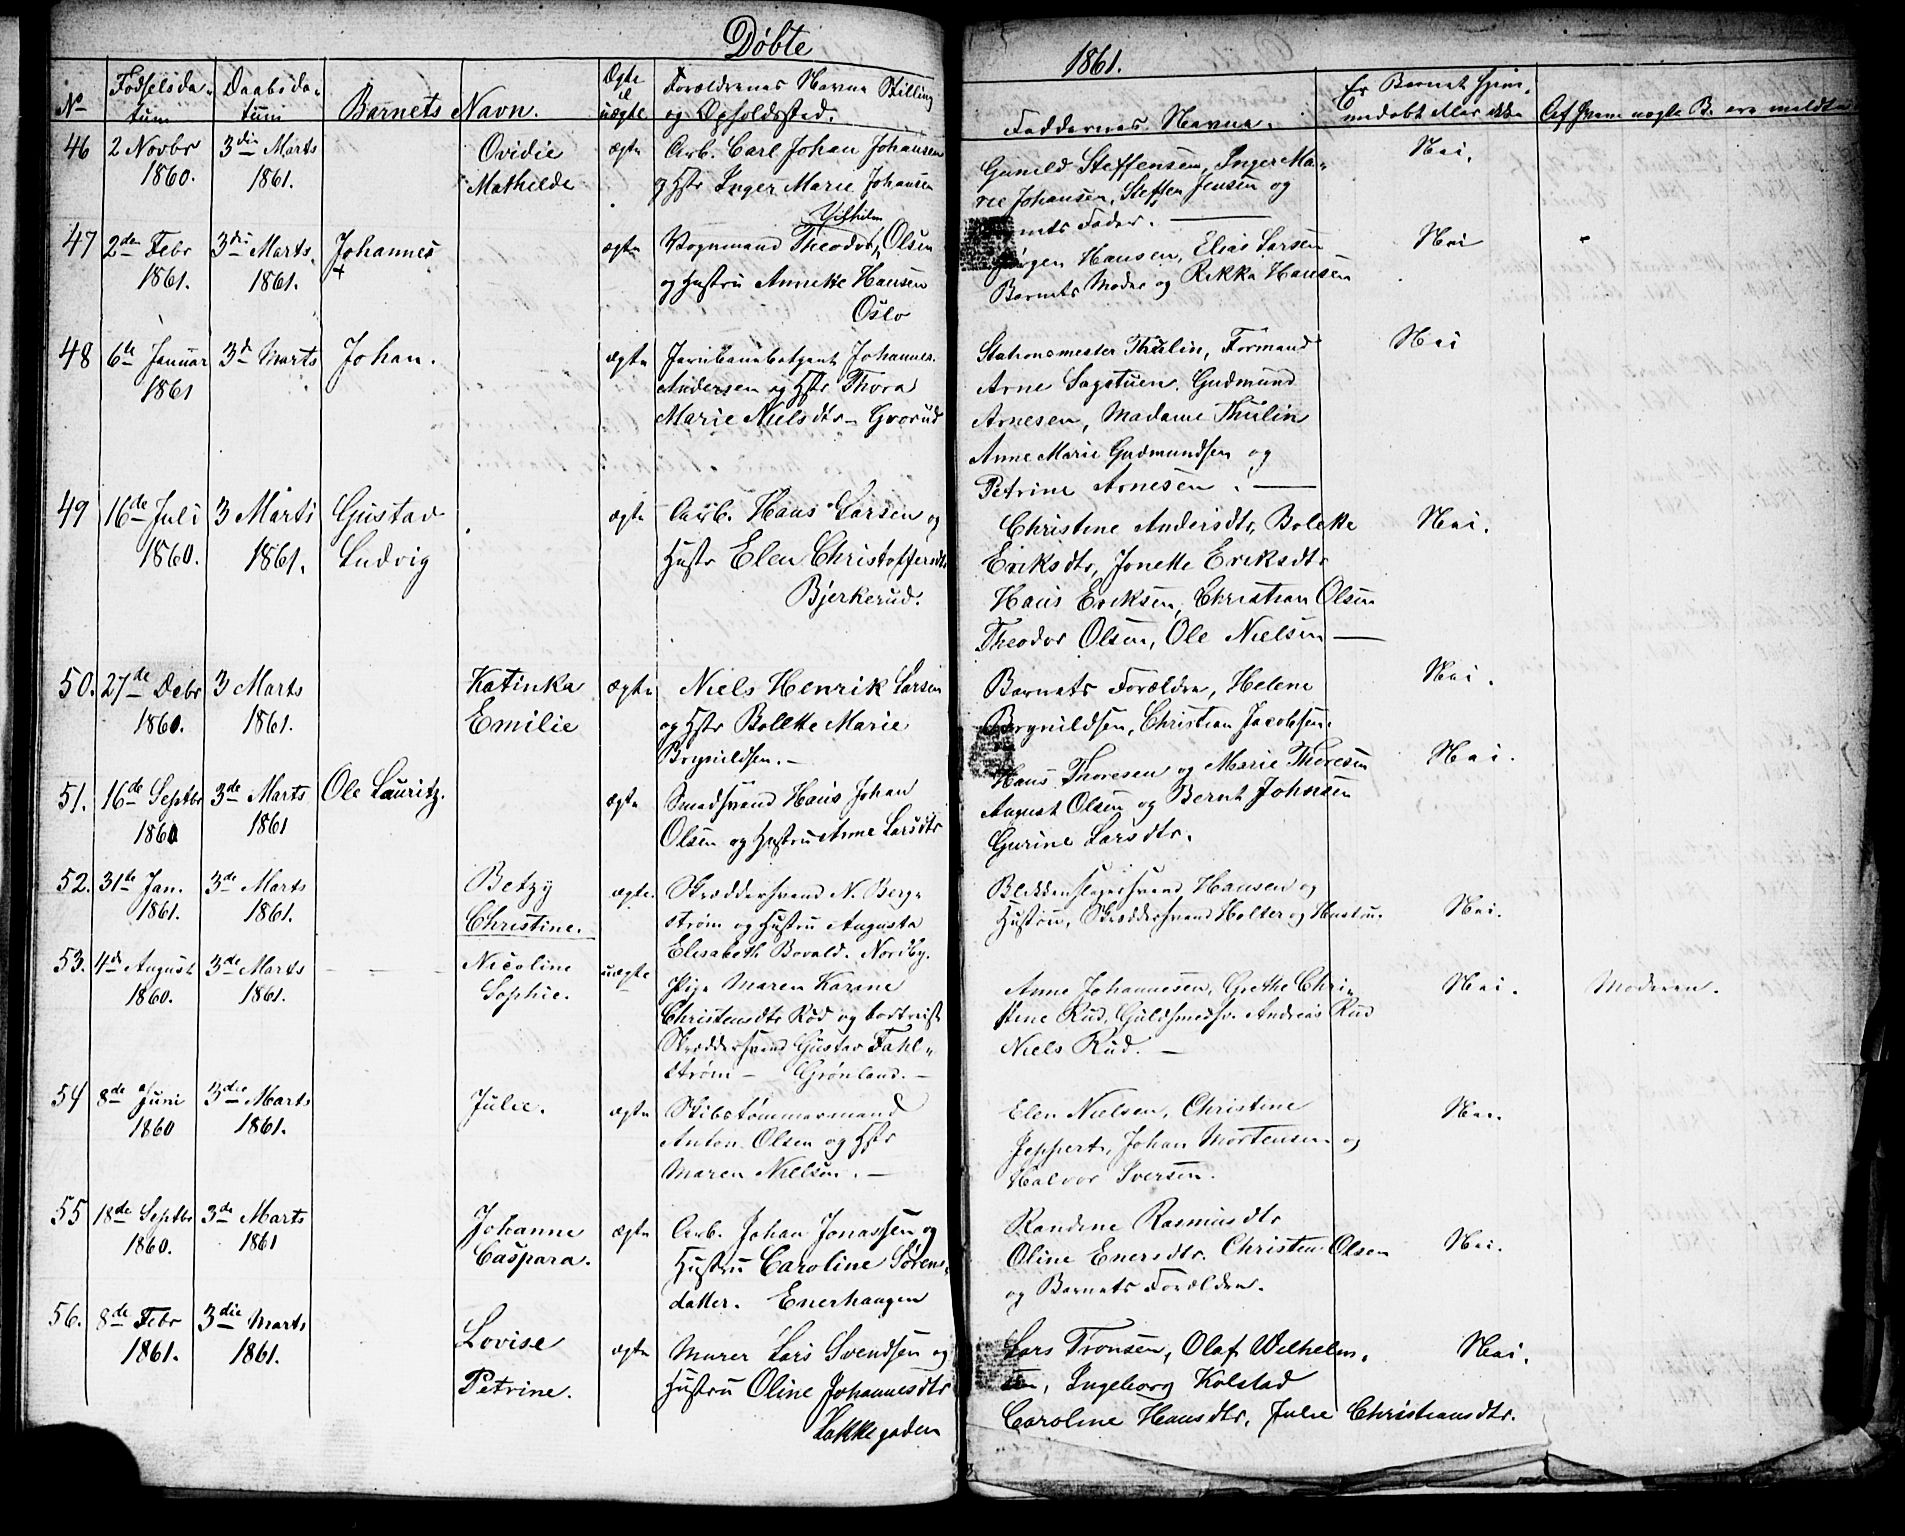 Døbte
1861.
No
Fødselsda-
tum
Daabsda-
tum
Barnets Navn.
Ægte
el
uægte
Forældrenes Navne Stilling
og Opholdssted.
Faddernes Navne.
Er Barnet hjem-
medøbt eller ikke
Af hvem uægte B. ere meldte
46 2 Novbr 3die Marts Ovidie ægte Arb. Carl Johan Johansen
1860. 1861. Mathilde og Hstr Inger Marie Johansen
Gunild Steffensen, Inger Ma- Nei.
rie Johansen, Steffen Jensen og
Fader.
Vilhelm
47 2den Febr 3die Marts. Johannes ægte Vognmand Theodor Olsen
1861. 1861. + og Hustru Annette Hansen
Oslo
Jørgen Hansen, Elias Larsen Nei
Barnets Moder og Rikka Hansen
48 6te Januar 3d Marts Johan. ægte Jernbanebetjent Johannes
1861 Andersen og Hstr Thora
Marie Nielsdtr - Grorud
Stationsmester Thulin, Formand Nei
Arne Sagstuen, Gudmund
Arnesen, Madame Thulin
Anne Marie Gudmundsen og
Petrine Arnesen.
49 16de Juli 3 Marts Gustav ægte Arb. Hans Larsen og
1860. 1861. Ludvig Hustr Elen Christoffersdtr
Bjerkerud.
Christine Andersdtr, Bolette Nei.
Eriksdtr, Jonette Eriksdtr
Hans Eriksen, Christian Olsen
Theodor Olsen, Ole Nielsen
50. 27de Debr 3 Marts Katinka ægte Niels Henrik Larsen
1860. 1861. Emilie og Hstr Bolette Marie
Brynildsen. -
Barnets Forældre, Helene Nei.
Brynildsen, Christian Jacobsen
51. 16de Septbr 3de Marts Ole Lauritz. ægte Smedsvend Hans Johan
1860 1861 Olsen og Hustru Anne Larsdtr
Hans Thoresen og Marie Thoresen Nei.
August Olsen og Bernt Johnsen
Gurine Larsdtr.
52. 31te Jan. 3de Marts Betzy ægte. Skræddersvend N. Berg-
1861. 1861. Christine. strøm og Hustru Augusta
Elisabeth Bovald. Nordby.
Blikkenslagersvend Hansen og
Hustru, Skræddersvend Holter og Hustru. Nei.
53. 4de August 3de Marts - - - Nicoline uægte Pige Maren Karine
1860. 1861. Sophie. Christensdtr Rød og bortreist
Skræddersvend Gustav Fahl-
strøm - Grønland. -
Anne Johannesen, Grethe Chri- Nei. Moderen.
stine Rud, Guldsmedsv. Andreas Rud
Niels Rud. -
54 8de Juni 3die Marts Julie. ægte Skibstømmermand
1860 1861. Anton Olsen og Hstr
Maren Nielsen. -
Elen Nielsen, Christine Nei.
Jeppert, Johan Mortensen og
Halvor Iversen.
55 18de Septbr 3de Marts Johanne ægte Arb. Johan Jonassen og
1860. 1861 Caspara. Hustru Caroline Sørens-
datter. Enerhaugen
Randine Rasmusdtr
Oline Enersdtr. Christen Olsen Nei.
og Barnets Forældre.
56. 8de Febr 3die Marts Lovise ægte Murer Lars Svendsen og
1861. 1861. Petrine. Hustru Oline Johannesdtr
Lakkegaden
Lars Tronsen, Olaf Wilhelm- Nei.
sen, Ingeborg Kolstad
Caroline Hansdtr, Julie Christiansdtr.